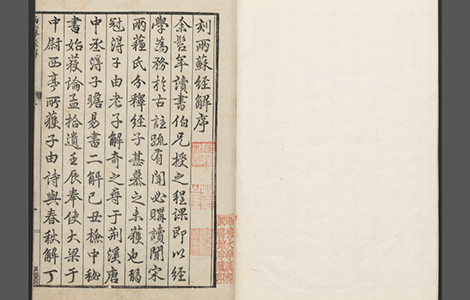 刻兩蘇經解序
余髫年讀書伯兄授之程課即以經
學為務於古註疏有聞必購讀聞宋
兩蘓氏分釋經子甚慕之未獲也弱
冠得子由老子解奇之尋于荆溪唐
中丞得子瞻易書二解己丑檢中秘
書始蓛論孟拾遺壬辰奉使大梁于
中尉西亭所蓛子由詩與春秋解丁